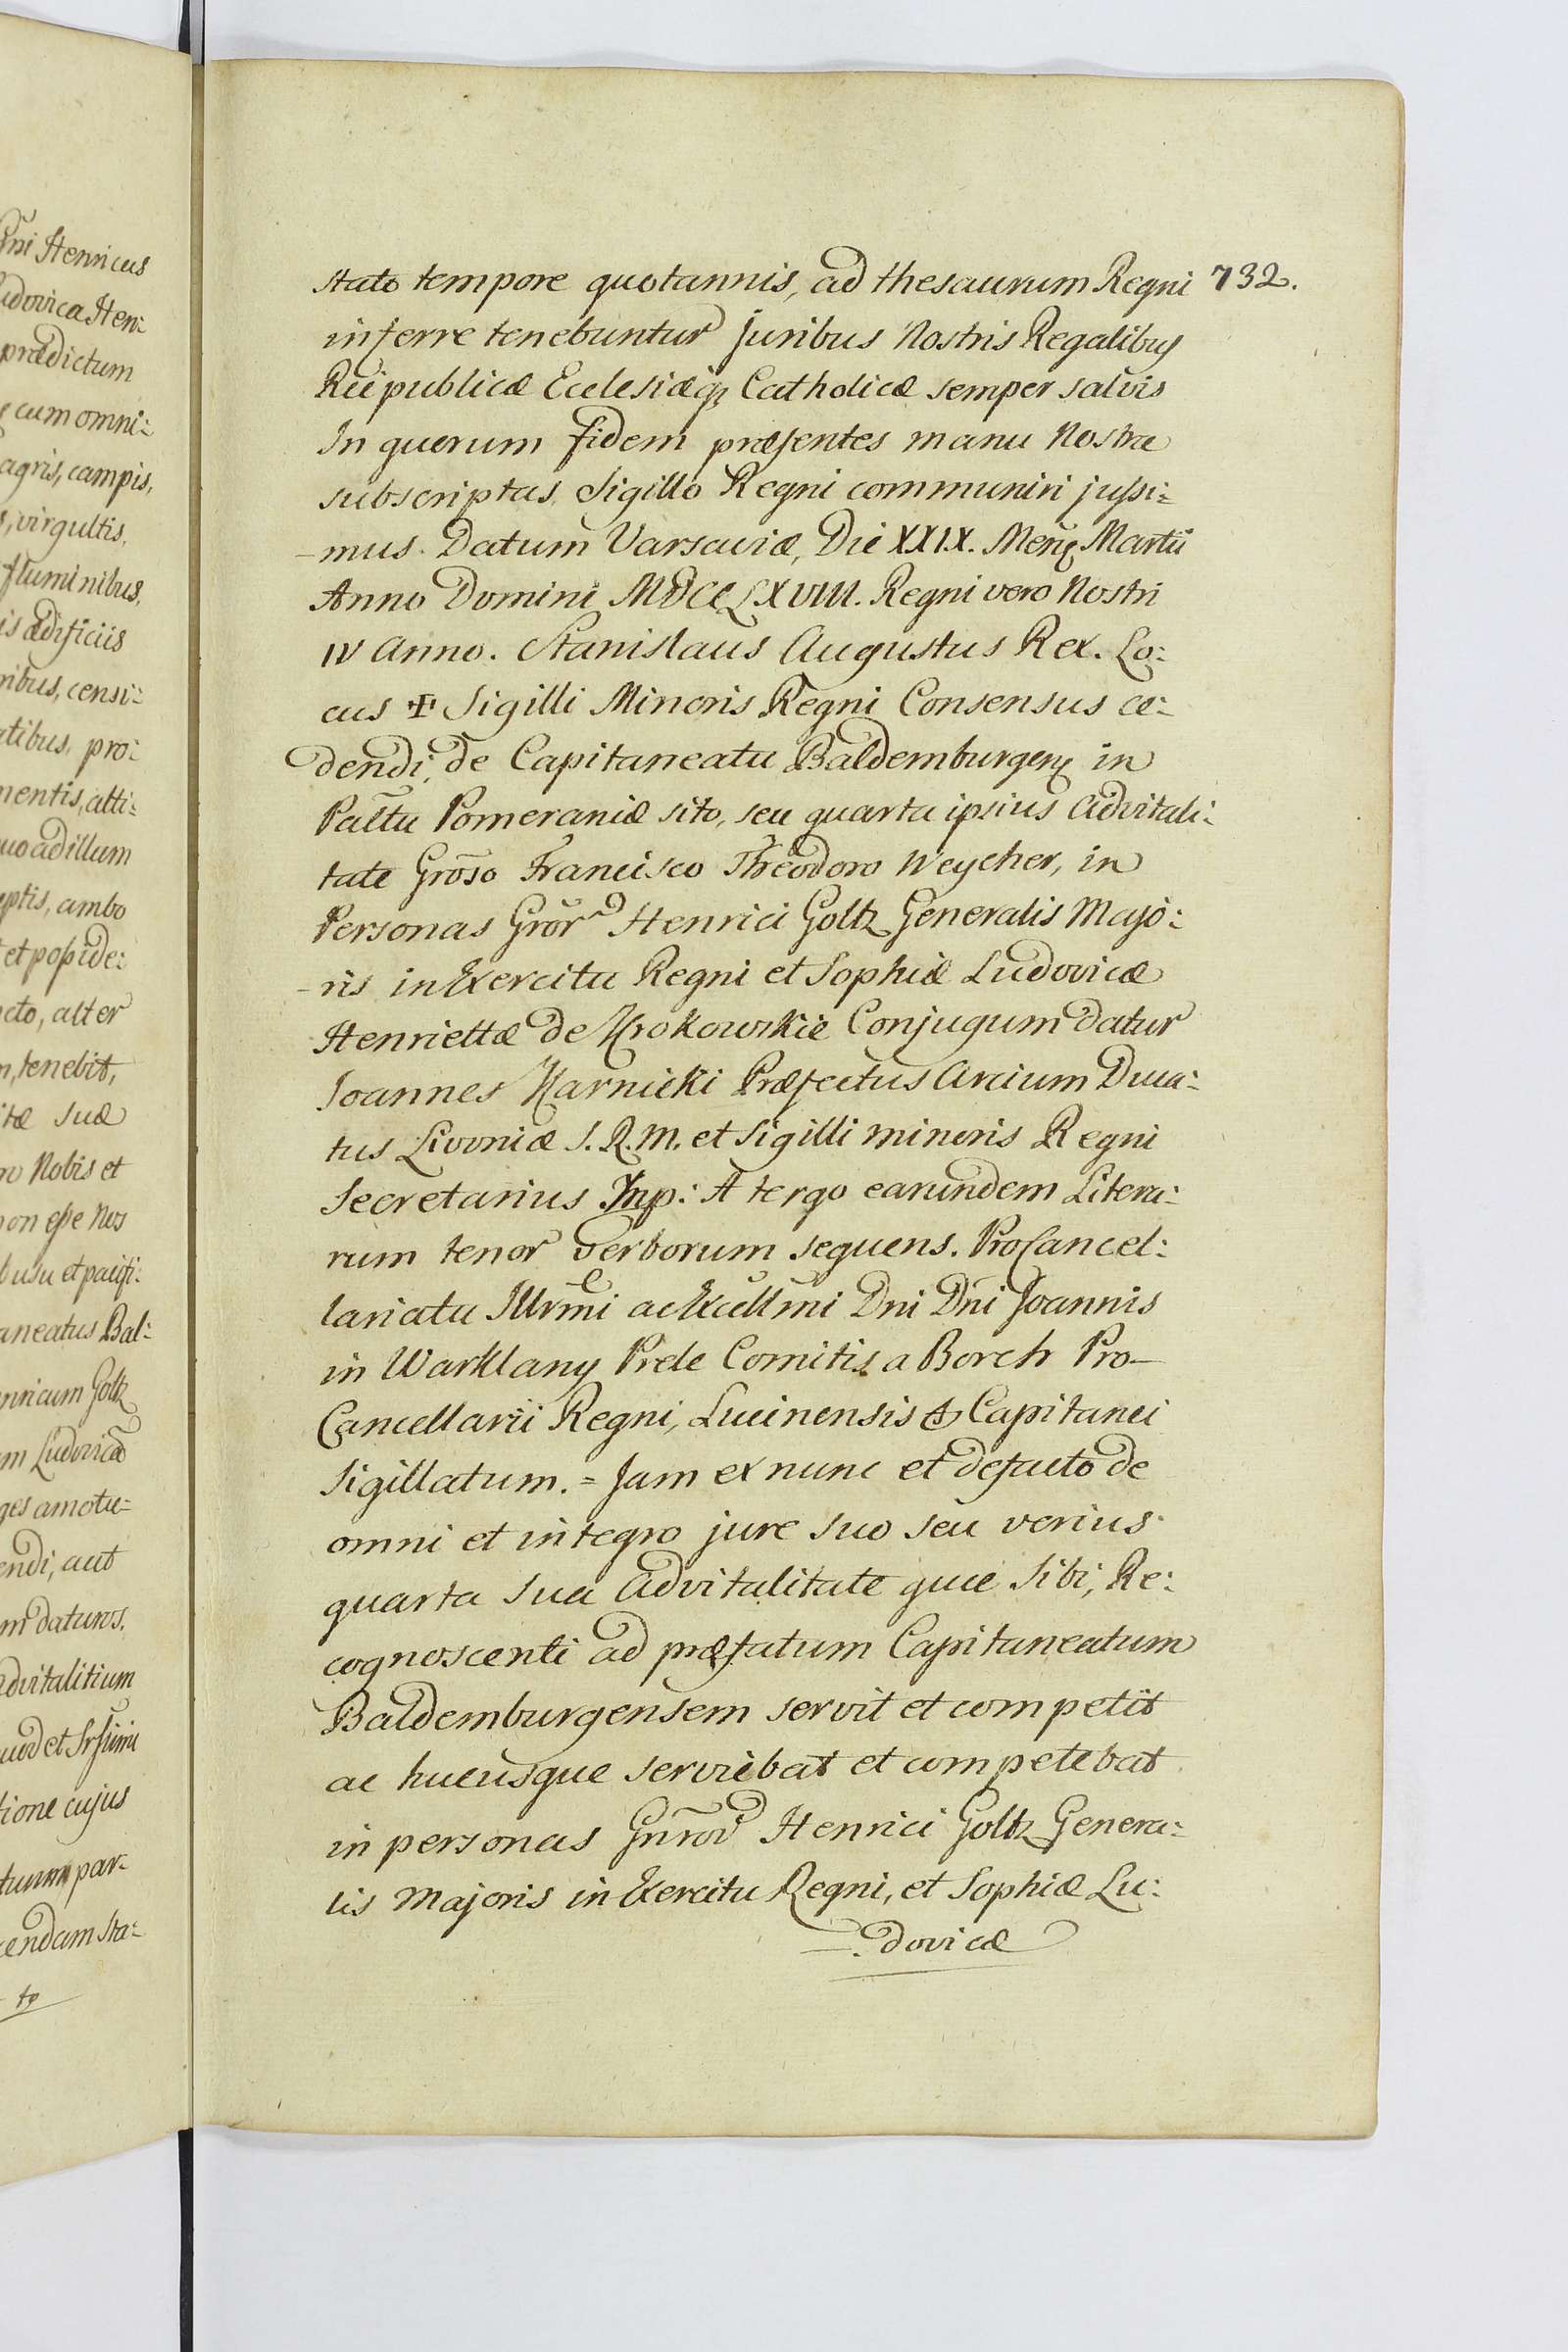 ſni Henricus
udovica Hen:
prædictum
cum omni:
agris, campis,
s, virgultis,
fluminibus,
is ædificiis
nibus, censi:
tibus, pro:
mentis, atti:
uo ad illum
eptis, ambo
et poſside:
cto, alter
m, tenebit,
itæ suæ
ro Nobis et
non eſse Nos
l usu et pacifi:
aneatus Bal:
nricum Goltz
m Ludovicã
ges amotu=
endi, aut
m daturos.
advitalitium
uod et
tione cujus
tumm par-
cendam sta:
- to
stato tempore quotannis, ad thesaurum Regni 732.
inferre tenebuntur Juribus Nostris Regalibus
Reipublicæ Ecclesiæq, Catholicæ semper salvis
In quorum fidem præsentes manu Nostra
subscriptas Sigillo Regni communiri juſsi:
-mus. Datum Varsaviæ, Die XXIX. Mens Martii
Anno Domini MDCCLXVIII. Regni vero Nostri
IV Anno. Stanislaus Augustus Rex. Lo:
cus ✠ Sigilli Minoris Regni Consensus ce:
dendi, de Capitaneatu Baldemburgens in
Paltu Pomeraniæ sito, seu quarta ipsius Advitali:
tate Groso Francisco Theodoro Weycher, in
Personas Gror Henrici Goltz Generalis Majo:
-ris in Exercitu Regni et Sophiæ Ludovicæ
Henriettæ de Krokowskie Conjugum datur
Joannes Karnicki Præfectus Arcium Duca:
tus Livoniæ S. R. M. et Sigilli minoris Regni
Secretarius Mp: A tergo earundem Litera:
rum tenor verborum sequens. ProCancel:
lariatu Illrmi ac Excellmi Dni Dni Joannis
in Warklany Prele Comitis a Borch Pro–
Cancellarii Regni, Lucinensis & Capitanei
Sigillatum. = Jam ex nunc et defacto de
omni et integro jure suo seu verius
quarta sua Advitalitate quæ Sibi, Re:
cognoscenti ad præfatum Capitaneatum
Baldemburgensem servit et competit
ac hucusque serviebat et competebat
in personas Gnror Henrici Goltz Genera:
lis Majoris in Exercitu Regni, et Sophiæ Lu:
-: dovicæ